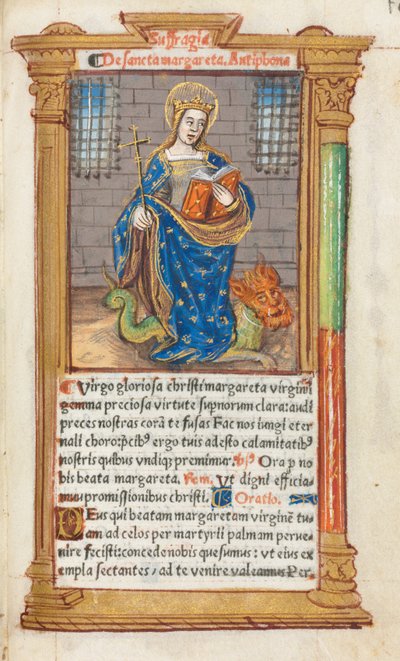 Suffragia
De sancta margareta. Antiphona
Virgo gloriosa christi margareta virginũ
gemma preciosa virtute supnorum clara: audi
preces nostras corã te fusas Fac nos iungi eter
nali choro: pcibꝰ ergo tuis adesto calamitatibꝰ
nostris quibus vndiqꝫ premimur. Ora p no
bis beata margareta. Ut digni efficia
mur promissionibus christi. Oratio.
Deus qui beatam margaretam virginẽ tu
am ad celos per martyrii palmam perue
nire fecisti: concede nobis quesumus: vt eius ex
empla sectantes, ad te venire valeamus Per